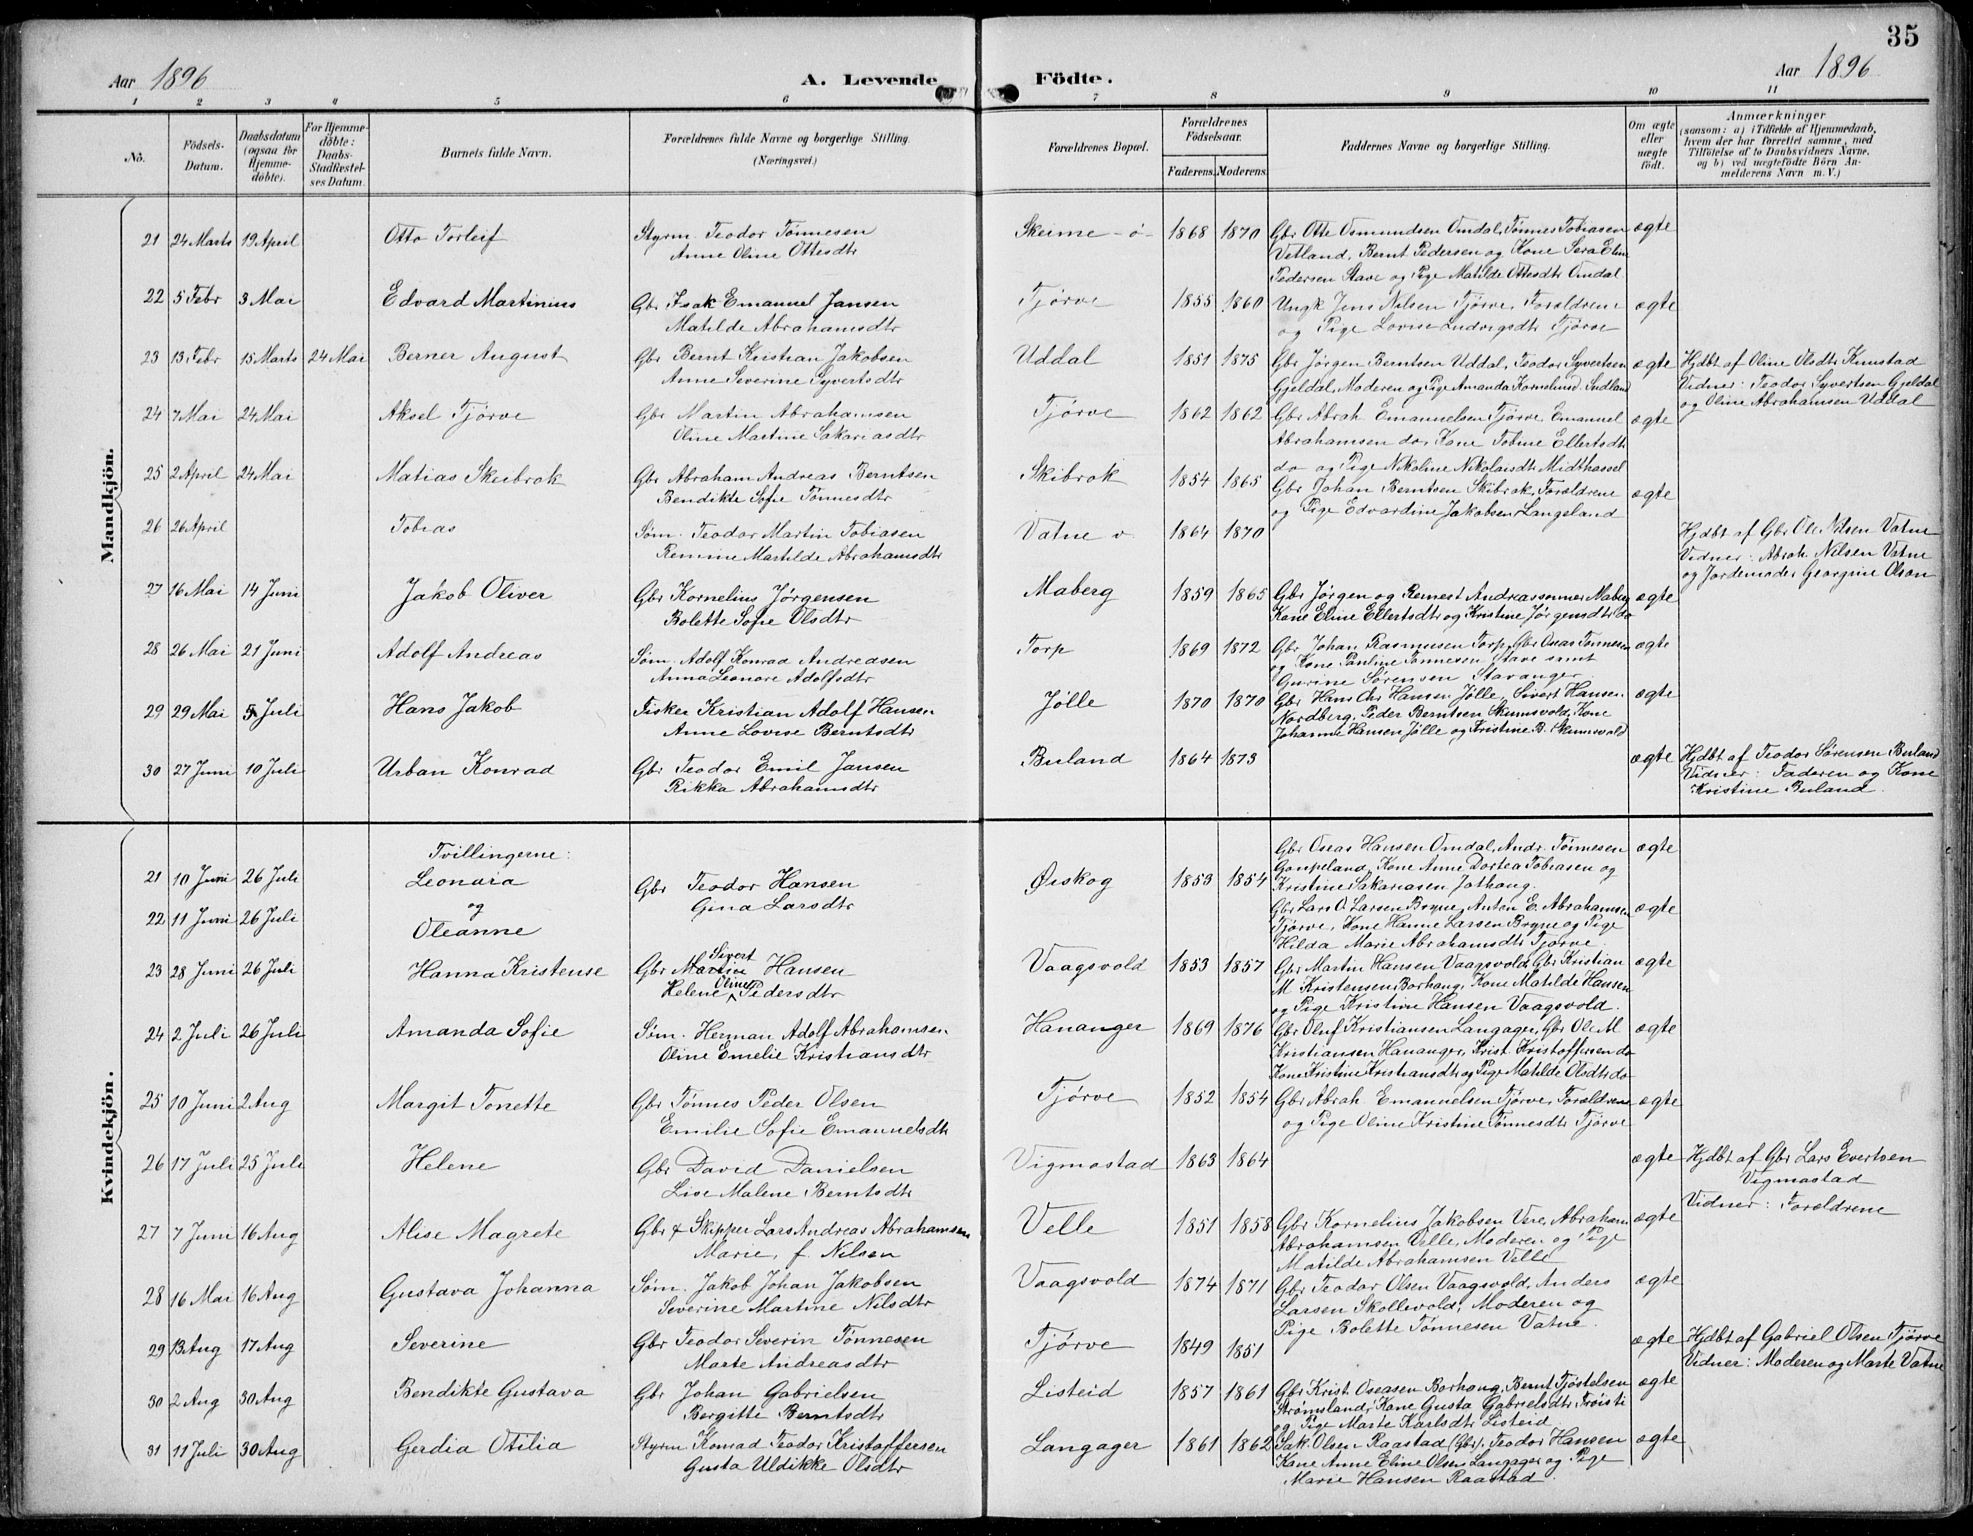 35
Aar 1896
A. Levende Födte.
Aar 1896
1 2 3 4 5 6 7 8 9 10 11
No.
Födsels-Datum.
Daabsdatum (ogsaa for Hjemme-döbte).
For Hjemme-döbte: Daabs-Stadfæstel-ses Datum.
Barnets fulde Navn.
Forældrenes fulde Navne og borgerlige Stilling. (Næringsvei.)
Forældrenes Bopæl.
Forældrenes Födselsaar.
Faderens. Moderens.
Faddernes Navne og borgerlige Stilling.
Om ægte eller uægte födt.
Anmærkninger (saasom: a) i Tilfælde af Hjemmedaab, hvem der har forrettet samme, med Tilföielse af to Daabsvidners Navne, og b) ved uægtefödte Börn Anmelderens Navn m. V.)
Mandkjön.
21 24 Marts 19 April Otto Torleif Styrm. Teodor Tønnesen Skeime - ø - 1868 1870 Gbr Otte Osmundsen Omdal, Tønnes Tobiasen ægte
Anne Oline Ottesdtr Vetland, Bernt Pedersen og Kone Sera Elin
Pedersen Stave og Pige Matilde Ottesdtr Omdal
22 5 Febr 3 Mai Edvard Martinius Gbr Isak Emanuel Jansen Tjørve 1855 1860 Ungk Jens Nilsen Tjørve, Forældrene ægte
Matilde Abrahamsdtr og Pige Lovise Ludvigsdtr Tjørve
23 13 Febr 15 Marts 24 Mai Berner August Gbr Bernt Kristian Jakobsen Uddal 1851 1875 Gbr Jørgen Berntsen Uddal, Teodor Syvertsen ægte Hjdbt af Oline Olsdtr Kunstad
Anne Severine Syvertsdtr Gjeldal, Moderen og Pige Amanda Kornelinsd. Sudland Vidner: Teodor Syvertsen Gjeldal
og Oline Abrahamsen Uddal
24 7 Mai 24 Mai Aksel Tjørve Gbr Martin Abrahamsen Tjørve 1862 1862 Gbr Abrah Emanuelsen Tjørve, Emanuel ægte
Oline Martine Sakariasdtr Abrahamsen do, Kone Tobine Ellertsdtr
do og Pige Nikoline Nikolaisdtr Midthassel
25 2 April 24 Mai Matias Skeibrok Gbr Abraham Andreas Berntsen Skibrok 1854 1865 Gbr Johan Berntsen Skibrok, Forældrene ægte
Bendikte Sofie Tønnesdtr og Pige Edvardine Jakobsen Langeland
26 26 April Tobias Søm. Teodor Martin Tobiasen Vatne v. 1864 1870 Hjdbt af Gbr Ole Nilsen Vatne
Remine Martilde Abrahamsdtr Vidner: Abrah. Nilsen Vatne
og Jordemoder Georgine Olsen
27 16 Mai 14 Juni Jakob Oliver Gbr Kornelius Jørgensen Maberg 1859 1865 Gbr Jørgen og Remest Andreassenner Maberg ægte
Bolette Sofie Olsdtr Kone Eline Ellertsdtr og Kristine Jørgensdtr do
28 26 Mai 21 Juni Adolf Andreas Søm. Adolf Konrad Andreasen Torp 1869 1872 Gbr Johan Rasmusen Torp, Gbr Oseas Tønnesen ægte
Anna Leonore Adolfsdtr og Kone Pauline Tønnesen Stave samt
Gurine Sørensen Stavanger
29 29 Mai 5 Juli Hans Jakob Fisker Kristian Adolf Hansen Jølle 1870 1870 Gbr Hans Chr Hansen Jølle, Sivert Hansen ægte
Anne Lovise Berntsdtr Nordberg, Peder Berntsen Skeimsvold, Kone
Johanne Hansen Jølle og Kristine B. Skeimsvold
30 27 Juni 10 Juli Urban Konrad Gbr Teodor Emil Jansen Buland 1864 1873 ægte Hjdbt af Teodor Sørensen Buland
Rikka Abrahamsdtr Vidner: Faderen og Kone
Kristine Buland.
Kvindekjön.
Tvillingerne: Gbr Oseas Hansen Omdal, Andr. Tønnesen ægte
21 10 Juni 26 Juli Leonara Gbr Teodor Hansen Øiskog 1853 1854 Gaupeland, Kone Anne Dortea Tobiasen og
og Gina Larsdtr Kristine Sakariasen Jathaug.
22 11 Juni 26 Juli Oleanne Gbr Lars O. Larsen Bryne, Anton E. Abrahamsen ægte
Tjørve, Kone Hanne Larsen Bryne og Pige
Hilda Marie Abrahamsdtr Tjørve
23 28 Juni 26 Juli Hanna Kristense Gbr Sivert Martin Hansen Vaagsvold 1853 1857 Gbr Martin Hansen Vaagsvold, Gbr Kristian ægte
Helene Oline Pedersdtr M. Kristensen Borhaug, Kone Matilde Hansen
og Pige Kristine Hansen Vaagsvold.
24 2 Juli 26 Juli Amanda Sofie Søm. Herman Adolf Abrahamsen Hananger 1869 1876 Gbr Oluf Kristiansen Langager, Gbr Ole M. ægte
Oline Emelie Kristiansdtr Kristiansen Hananger, Krist. Kristoffersen do
Kone Kristine Kristiansdtr og Pige Matilde Olsdtr do
25 10 Juni 2 Aug Margit Tonette Gbr Tønnes Peder Olsen Tjørve 1852 1854 Gbr Abrah Emanuelsen Tjørve, Forældrene ægte
Emilie Sofie Emanuelsdtr og Pige Oline Kristine Tønnesdtr Tjørve
26 17 Juli 25 Juli Helene Gbr David Danielsen Vigmostad 1863 1864 ægte Hjdbt af Gbr Lars Evertsen
Lise Malene Berntsdtr Vigmostad
Vidner: Forældrene
27 7 Juni 16 Aug Alise Magrete Gbr & Skipper Lars Andreas Abrahamsen Velle 1851 1858 Gbr Kornelius Jakobsen Vere, Abraham ægte
Marie, f. Nilsen Abrahamsen Velle, Moderen og Pige
Matilde Abrahamsen Velle
28 16 Mai 16 Aug Gustava Johanna Søm. Jakob Johan Jakobsen Vaagsvold 1874 1871 Gbr Teodor Olsen Vaagsvold, Anders ægte
Severine Martine Nilsdtr Larsen Skollevold, Moderen og
Pige Bolette Tønnesen Vatne.
29 13 Aug 17 Aug Severine Gbr Teodor Severin Tønnesen Tjørve 1849 1851 ægte Hjdbt af Gabriel Olsen Tjørve
Marte Andreasdtr Vidner: Moderen og Marte Vatne
30 2 Aug 30 Aug Bendikte Gustava Gbr Johan Gabrielsen Listeid 1857 1861 Gbr Krist. Oseasen Borhaug, Bernt Tjøstelsen ægte
Bergitte Berntsdtr Strømsland, Kone Gusta Gabrielsdtr Trøisti
og Pige Marte Karlsdtr Listeid
31 11 Juli 30 Aug Gerdia Otilia Styrm Konrad Teodor Kristoffersen Langager 1861 1862 Sak. Olsen Raastad (Gbr), Teodor Hansen ægte
Gusta Uldikke Olsdtr Kone Anne Eline Olsen Langager og Pige
Marie Hansen Raastad.